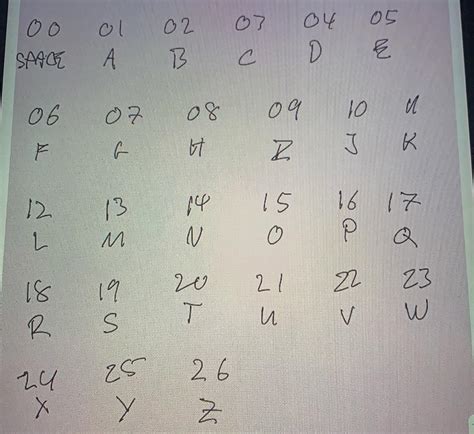 00 01 02 03 04 05
SPACE A B C D E
06 07 08 09 10 11
F G H I J K
12 13 14 15 16 17
L M N O P Q
18 19 20 21 22 23
R S T U V W
24 25 26
X Y Z